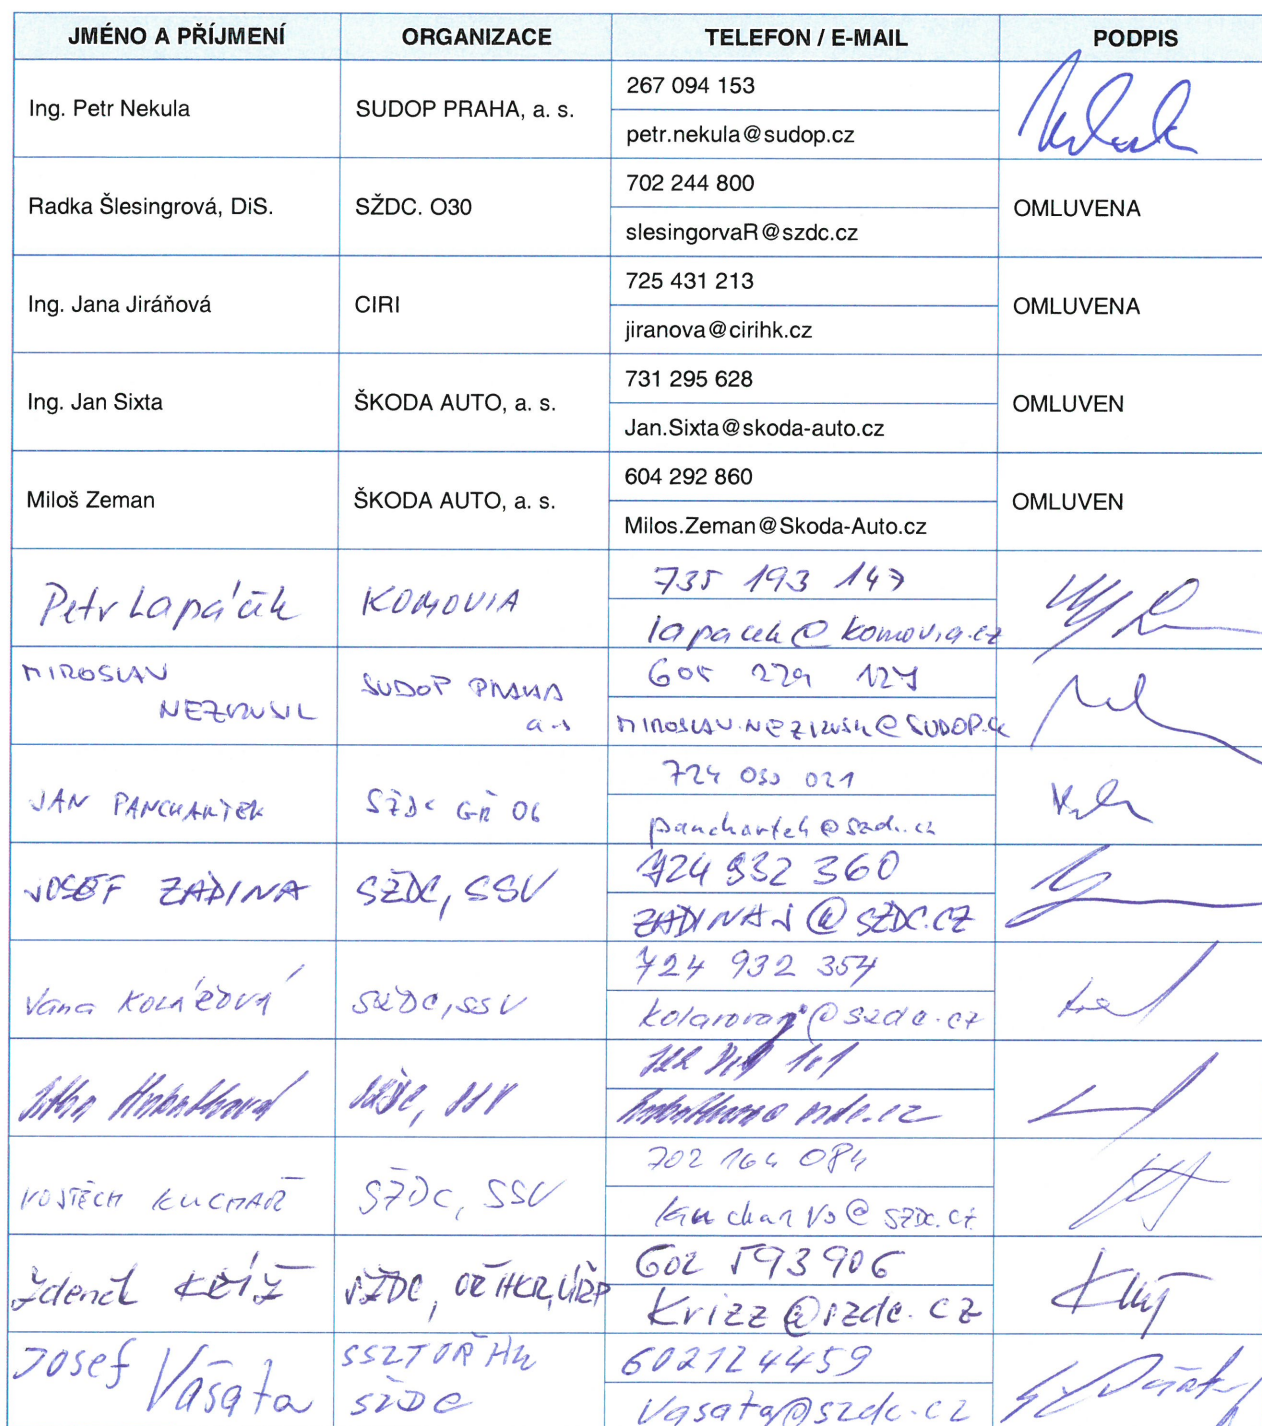 JMÉNO A PŘÍJMENÍ ORGANIZACE TELEFON / E-MAIL PODPIS
Ing. Petr Nekula SUDOP PRAHA, a. s. 267 094 153
petr.nekula@sudop.cz
Radka Šlesingrová, DiS. SŽDC. O30 702 244 800 OMLUVENA
slesingorvaR@szdc.cz
Ing. Jana Jiráňová CIRI 725 431 213 OMLUVENA
jiranova@cirihk.cz
Ing. Jan Sixta ŠKODA AUTO, a. s. 731 295 628 OMLUVEN
Jan.Sixta@skoda-auto.cz
Miloš Zeman ŠKODA AUTO, a. s. 604 292 860 OMLUVEN
Milos.Zeman@Skoda-Auto.cz
Petr Lapáček KOMOVIA 735 193 147
lapacek@komovia.cz
MIROSLAV SUDOP PRAHA 605 229 127
NEZKUSIL a.s MIROSLAV.NEZKUSIL@SUDOP.cz
JAN PANCHARTEK SŽDC GŘ O6 724 030 021
panchartek@szdc.cz
JOSEF ZADINA SŽDC, SSV 724 932 360
ZADINAJ@SZDC.CZ
KOLÁŘOVÁ SŽDC, SSV 724 932 354
kolarovaj@szdc.cz
SSV
VOJTĚCH KUCHAŘ SŽDC, SSV 702 164 084
kucharVo@szdc.cz
Zdeněk KŘÍŽ SŽDC, OŘ HKR, 602 593 906
Krizz@szdc.cz
Josef Vašata SSZT OŘ HK 602124459
SŽDC Vasata@szdc.cz